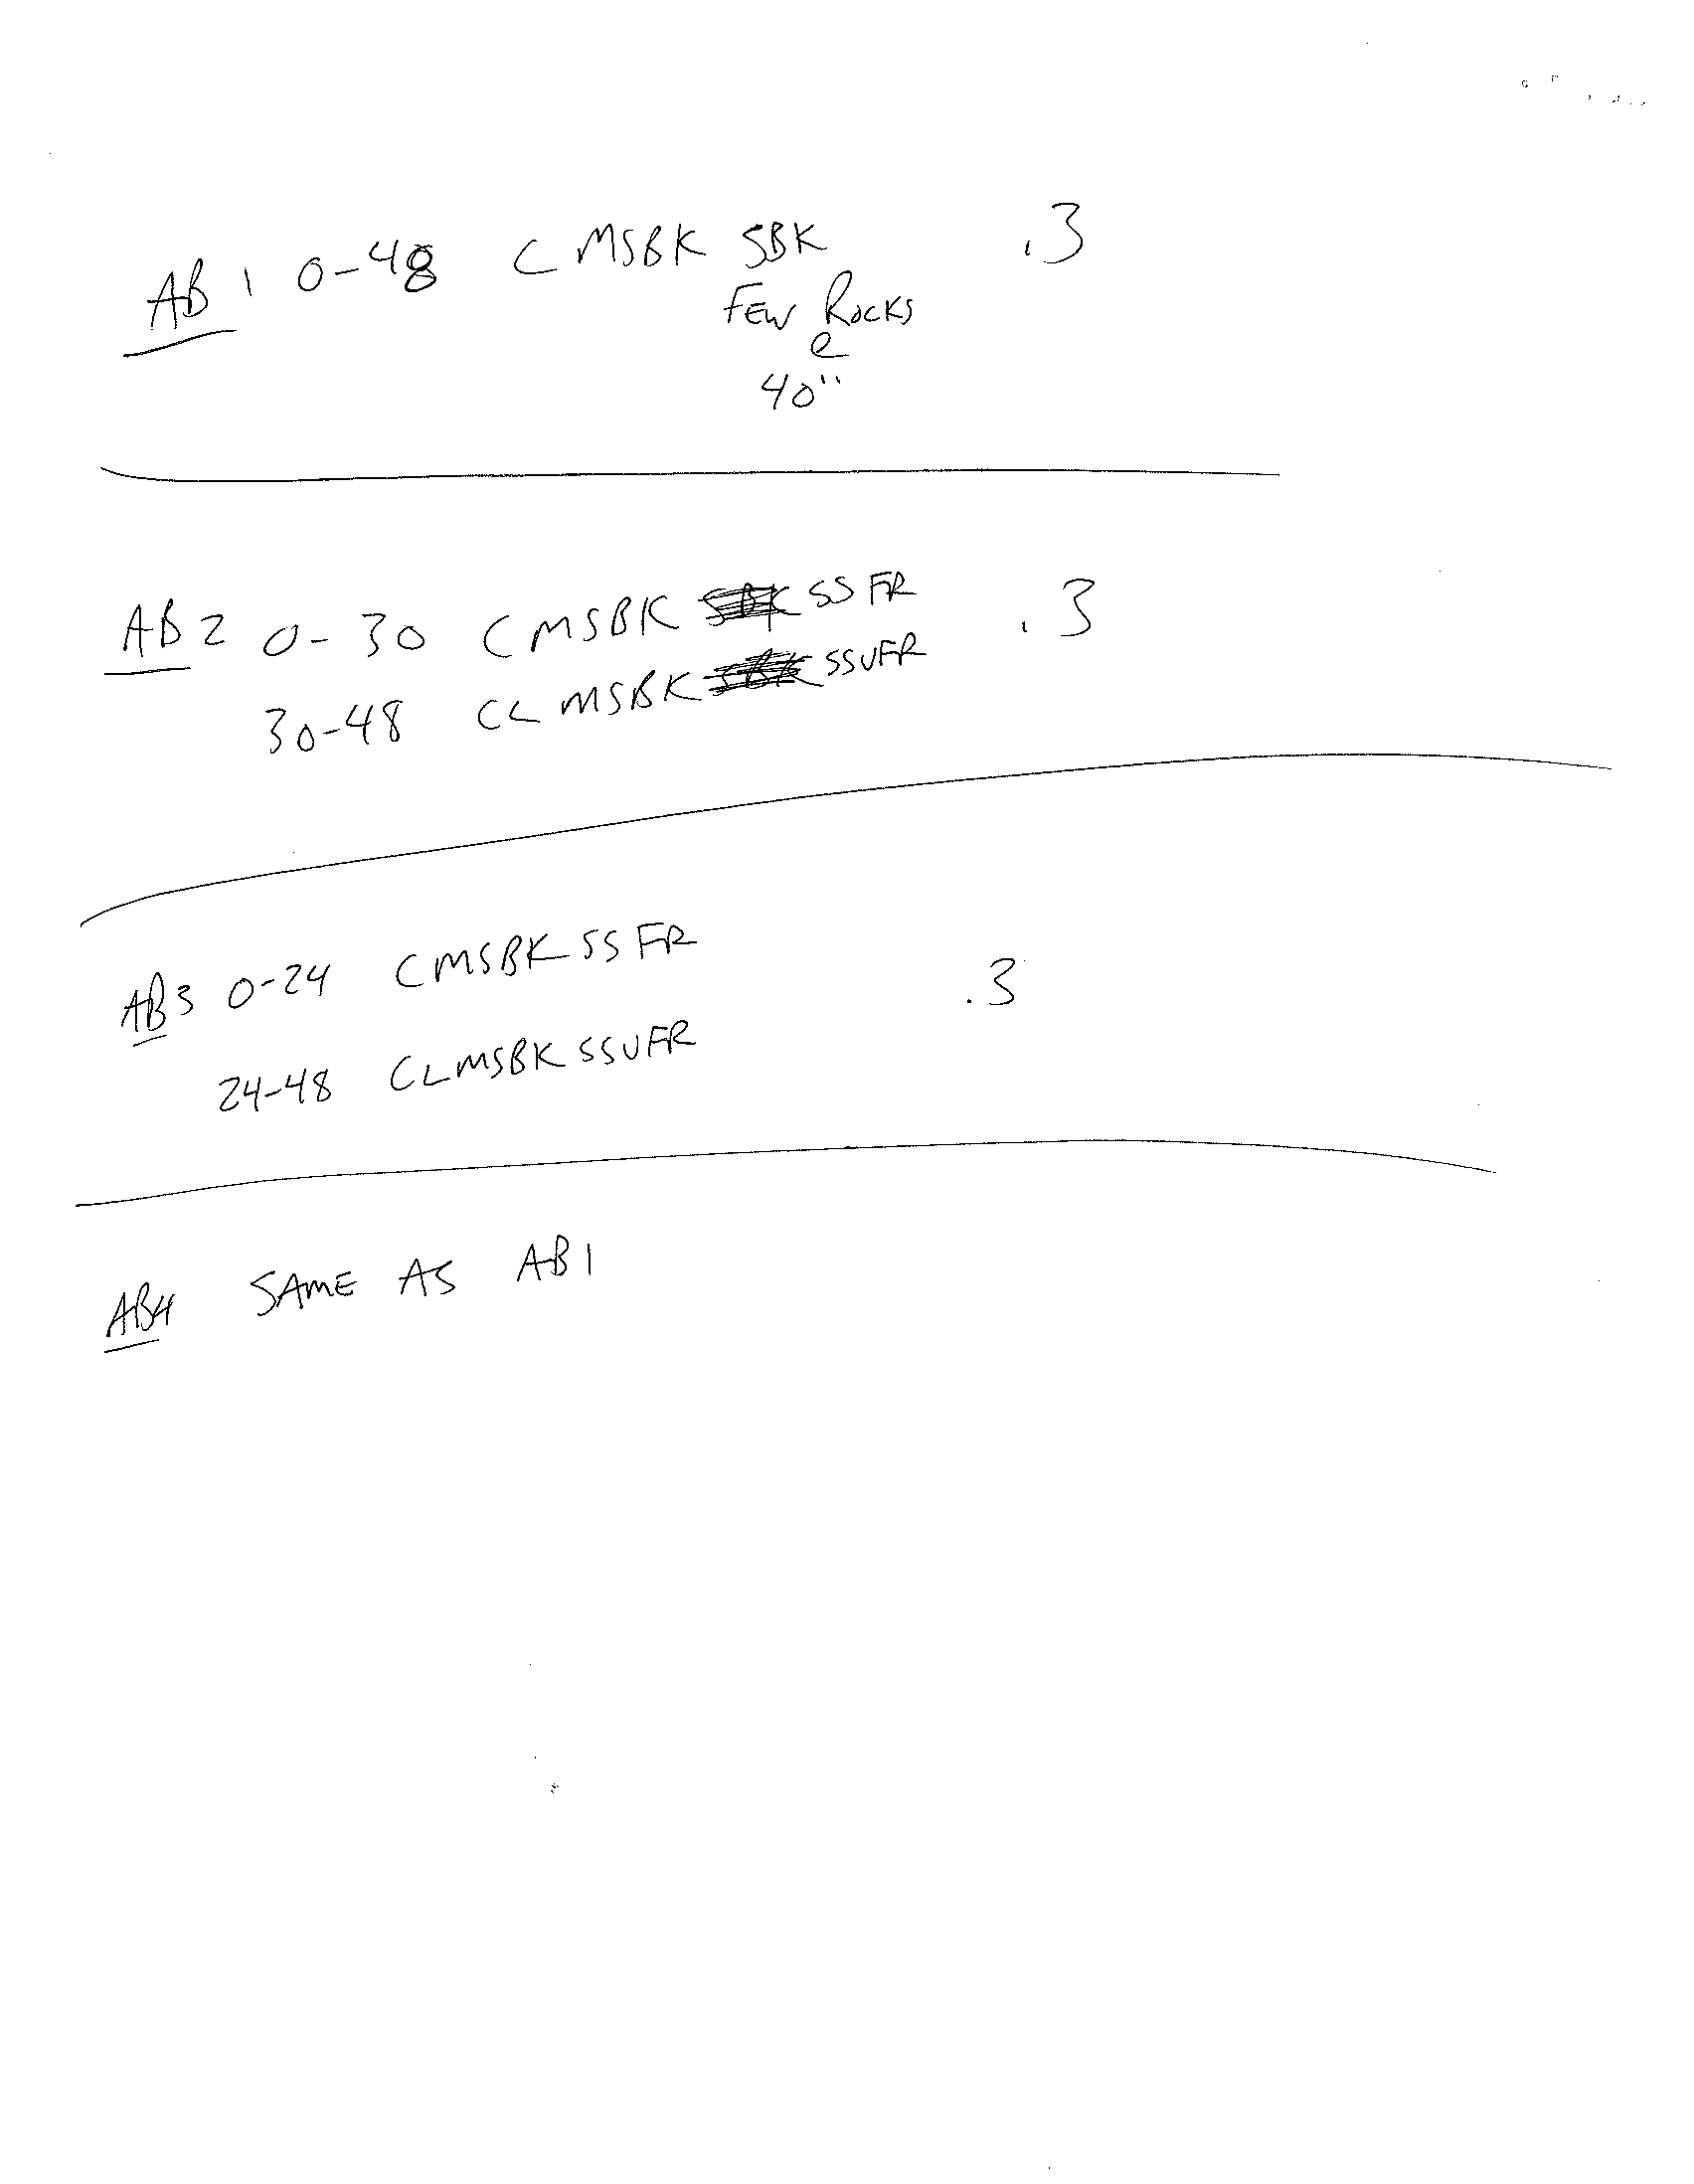 AB 1 0-48 C MSBK SBK .3
FEW ROCKS
@
40"
AB 2 0-30 C MSBK SS FR .3
30-48 CL MSBK SSVFR
AB3 0-24 CMSBK SS FR
.3
24-48 CLMSBK SSVFR
AB4 SAME AS AB1